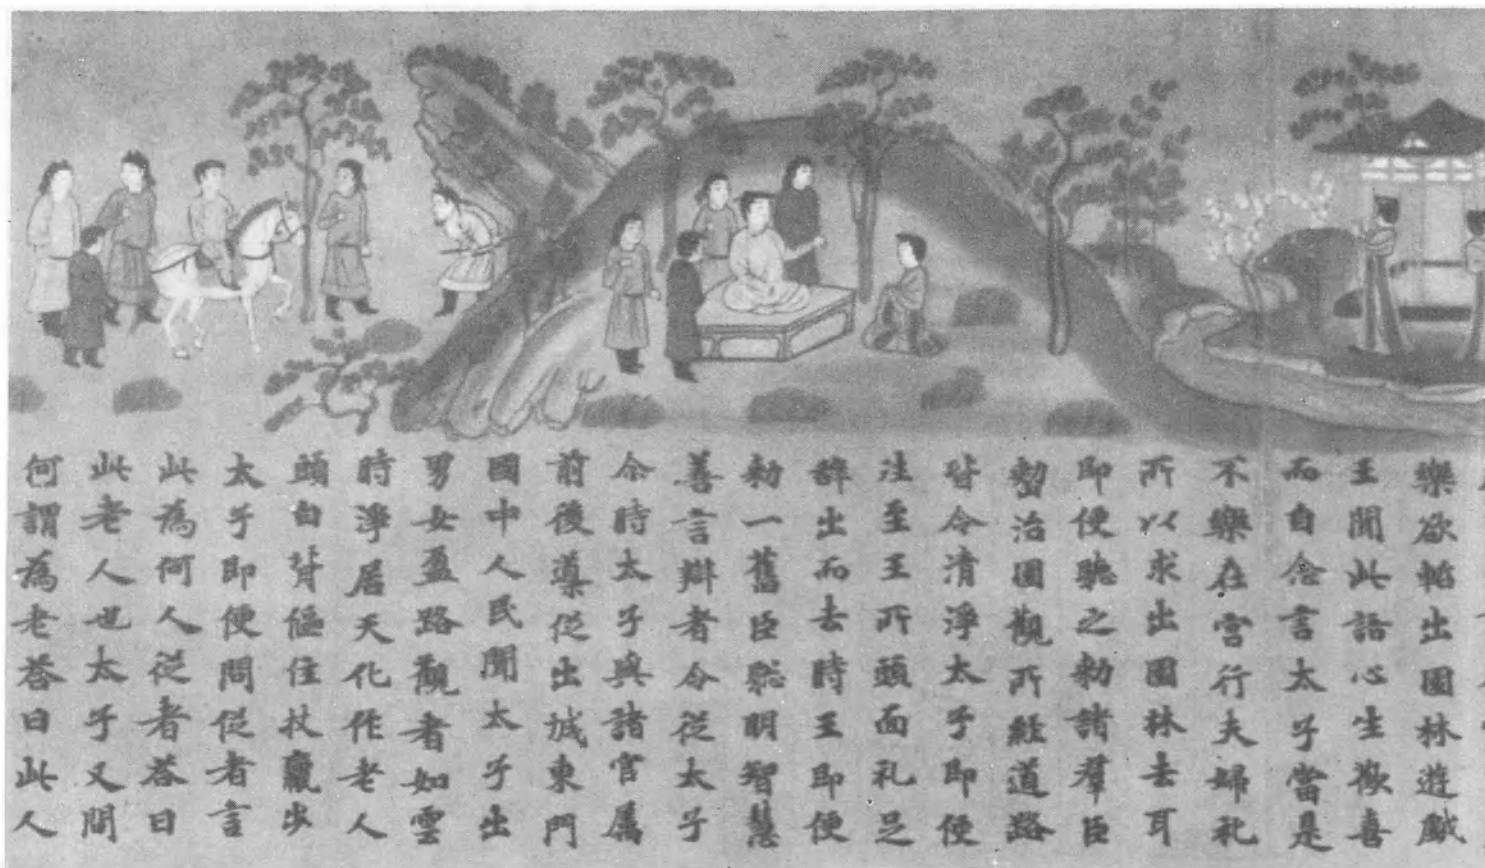 樂欲暫出園林遊戯
王聞此語心生歡喜
而自念言太子當是
不樂在宮行夫婦礼
所以求出園林去耳
即便聴之勅諸羣臣
整治園觀所経道路
皆令清淨太子即便
往至王所頭面礼足
辞出而去時王即便
勅一舊臣聡明智慧
善言辯者令従太子
尒時太子與諸官属
前後導従出城東門
國中人民聞太子出
男女盈路觀者如雲
時淨居天化作老人
頭白背傴住杖羸步
太子即便問従者言
此為何人従者荅曰
此老人也太子又問
何謂為老荅曰此人